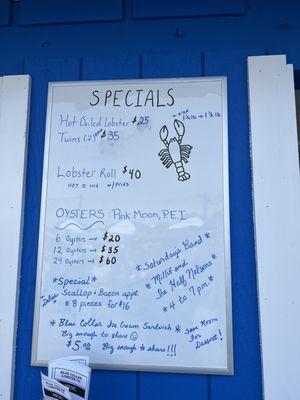 SPECIALS
Hot Boiled Lobster $25
1 1/4 lb - 1 1/2 lb
Twins (2) $35
Lobster Roll $40
HOT w/ Fries
OYSTERS: Pink Moon, P.E.I
6 Oysters → $20
12 Oysters → $35
24 Oysters → $60
*Special*
Scallop & Bacon appt.
*8 pieces for $16
*Saturday's Band*
*Millie and
the Half Nelsons*
*4 to 7pm*
*Blue Collar Ice Cream Sandwich*
Big enough to share
$5.00 Big enough to share!!!
*Save Room
For
Dessert!